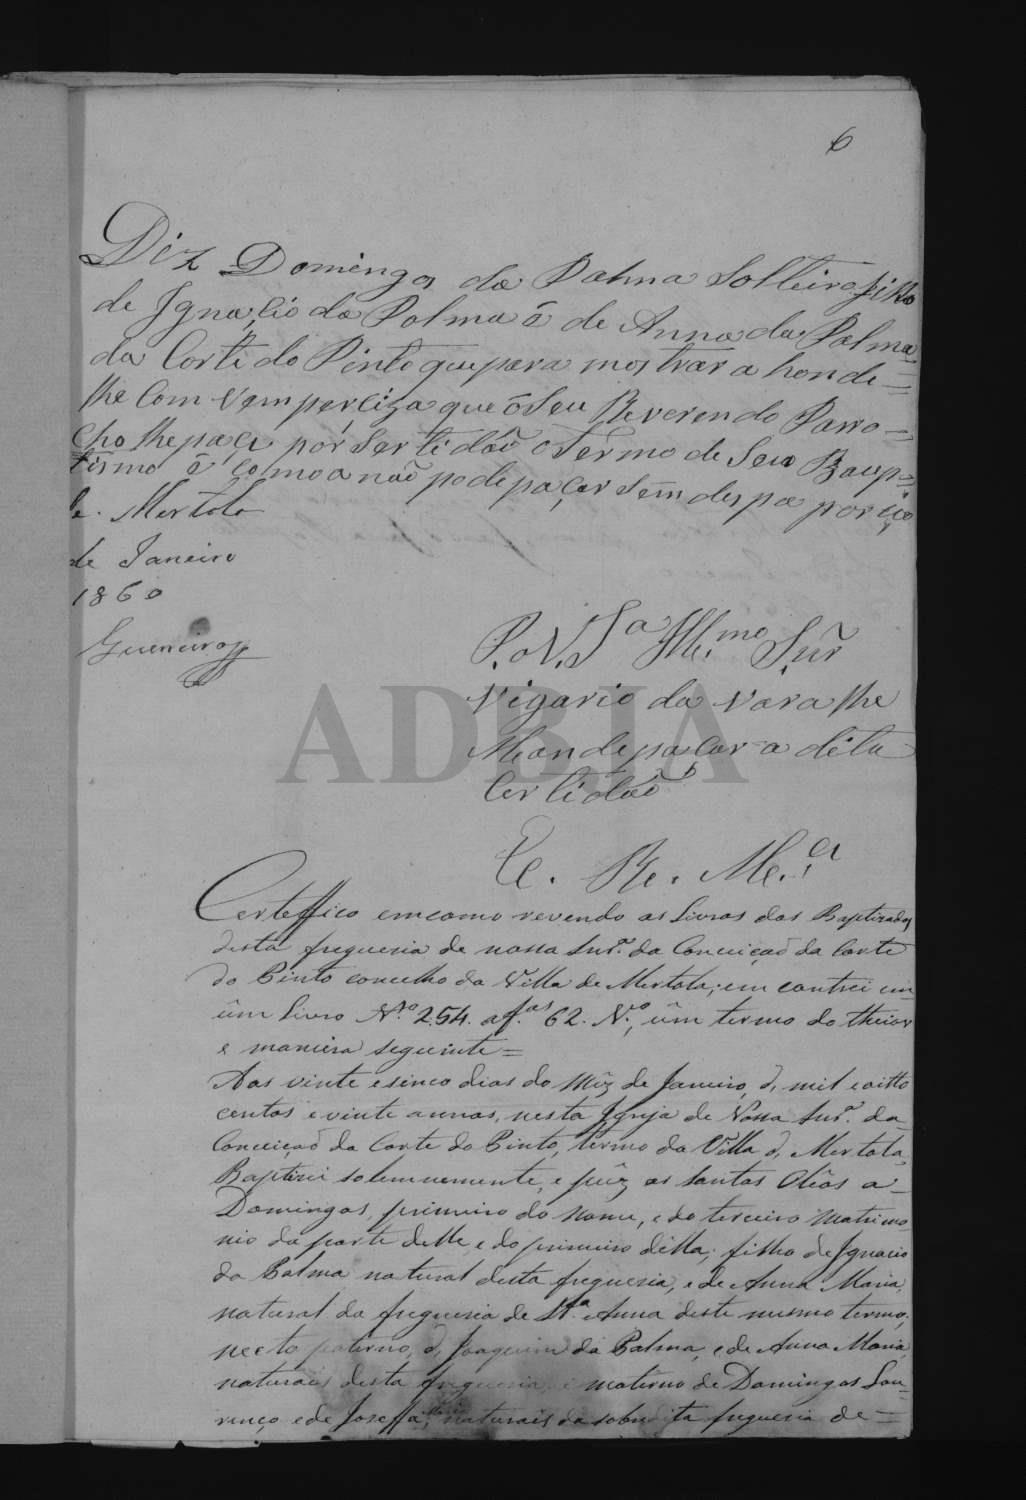 6
Diz Domingos da Palma Solteiro filho
de Ignaçio da Palma é de Anna da Palma
da Corte do Pinto que para mostrar a honde
lhe Com vem perçiza que ó Seu Reverendo Parro=
cho lhe paçe pór Sertidão o Termo de Seu Baup=
tismo é como a não pode paçar sem despa por iço
e. Mertola
de Janeiro
1860
Guerreiro
P. o V. Sa Illmo Snr
Vigario da Vara lhe
Mande paçar a dita
Certidão
E. Re. Me.ca
Certeffico em como revendo os Livros dos Baptizados
desta freguesia de nossa Snrª. da Conceiçaõ da Corte
do Pinto concelho da Villa de Mertola; em contrei em
úm Livro Nº. 254. a fas 62. Nº., úm termo do theior
e maneira seguinte=
Aos vinte e sinco dias do Mêz de Janeiro, d, mil e oitto
centos e vinte annos, nesta Igreja de Nossa Snrª. da
Conceiçaõ da Corte do Pinto, termo da Villa d, Mertola,
Baptizei solemnemente, e púz os santos Olêos a=
Domingos, primeiro do nome, e do terceiro Matrimo-
nio da parte delle, e do primeiro della; filho de Ignacio
da Palma natural desta freguesia, e de Anna Maria,
natural da freguesia de Stª. Anna deste mesmo termo,
neeto paterno, d, Joaquim da Palma, e de Anna Maria,
naturais desta freguesia, e materno de Domingos Lou-
renço, e de Joseffa, naturais da sobredita freguesia de=
ADBJA